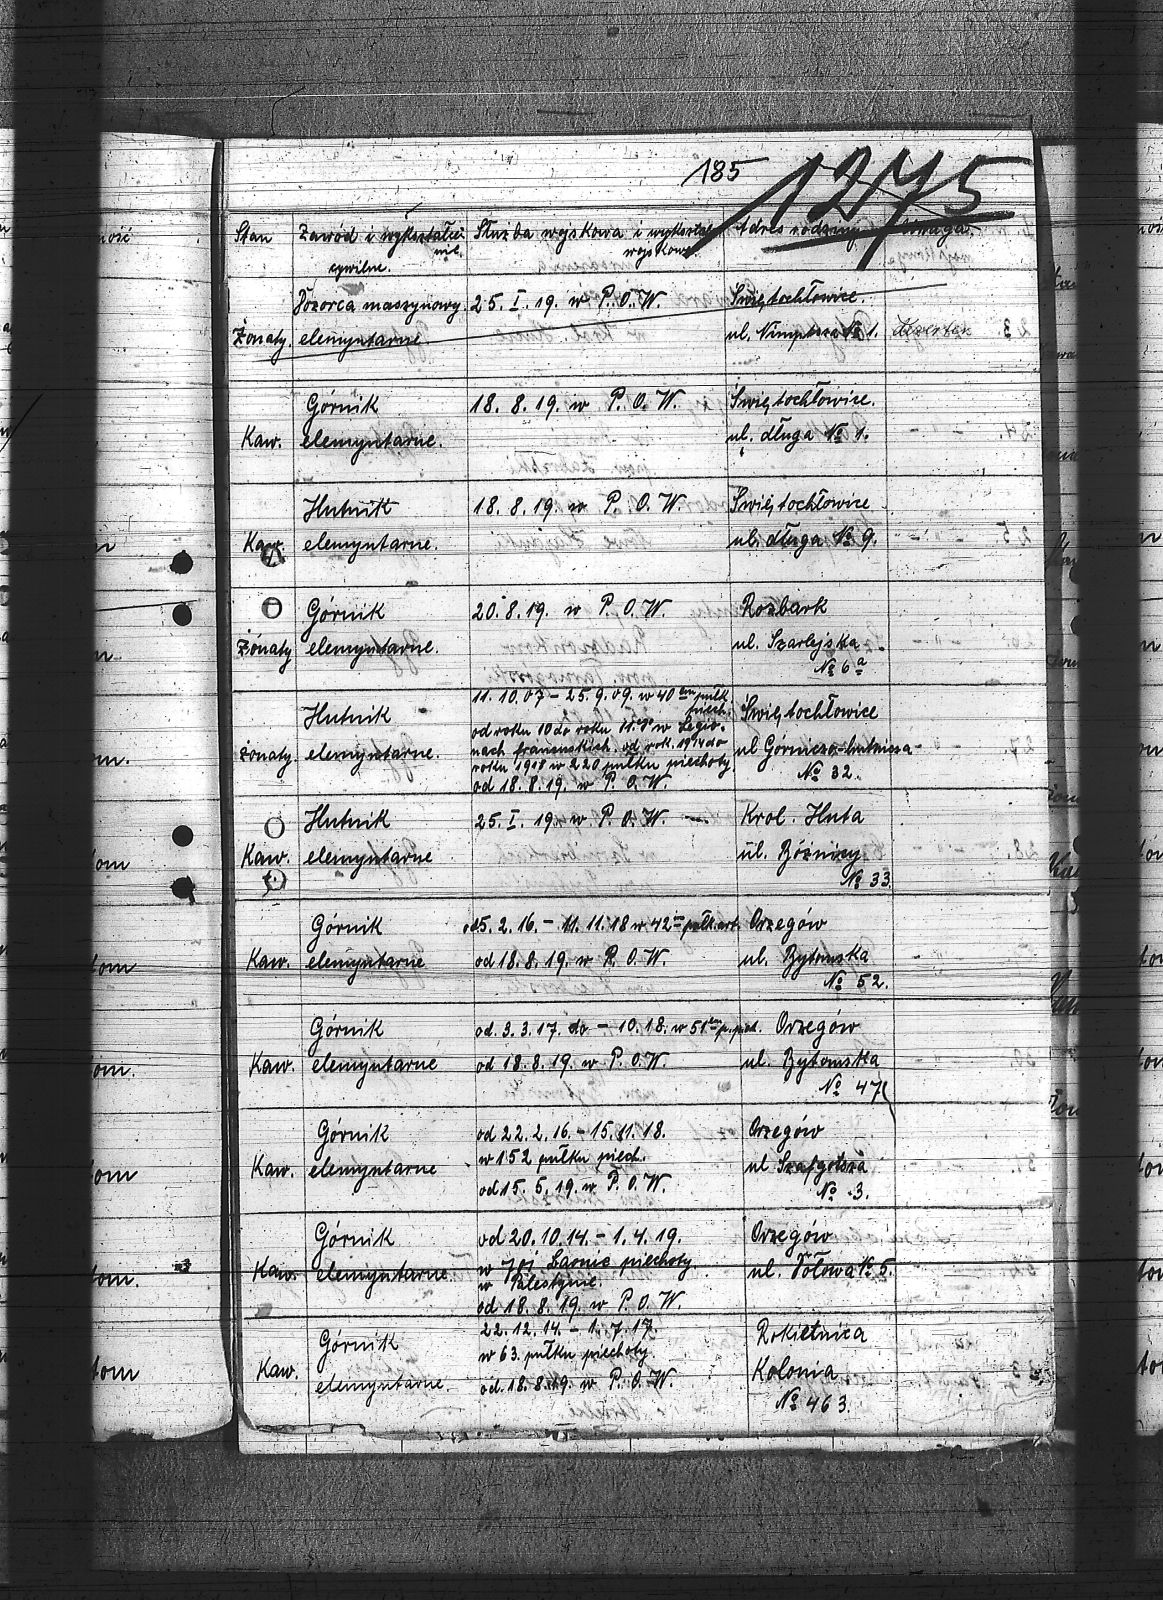 185
1275
Stan
Zawód i wykształce-
nie
cywilne.
Służba wojskowa i wykształc.
wojskowe.
Adres rodziny
Uwaga.
Dozorca maszynowy
25. I. 19. w P. O. W.
Świętochłowice.
Żonaty.
elementarne.
ul. № 1.
Górnik
18. 8. 19. w P. O. W.
Świętochłowice.
Kaw.
elementarne.
ul. długa № 1.
Hutnik
18. 8. 19. w P. O. W.
Świętochłowice
Kaw.
elementarne.
ul. długa № 9.
Górnik
20. 8. 19. w P. O. W.
Rozbark
Żonaty
elementarne.
ul. Szarlejska
№ 6a
11. 10. 07 – 25. 9. 09. w 40 tym pułk
piech.
Hutnik
Świętochłowice
od roku 10 do roku w Legio-
nach francuskich. od rok. 1914 do
Żonaty.
elementarne.
ul Górniczo-hutnicza
roku 1918 w 220 pułku piechoty.
№ 32.
od 18. 8. 19. w P. O. W.
Hutnik
25. I. 19. w P. O. W. —
Krol. Huta
Kaw.
elementarne
ul. Bóżnicy
№ 33
Górnik
5. 2. 16. – 11. 11. 18 w 42 im pułk. art.
Orzegów
Kaw.
elementarne
od 18. 8. 19. w P. O. W.
ul. Bytomska
№ 52.
Górnik
od. 3. 3. 17. do – 10. 18. w 51 tym p. piech.
Orzegów
Kaw.
elementarne
od 18. 8. 19. w P. O. W.
ul. Bytomska
№ 47
Górnik
od 22. 2. 16. – 15. 11. 18.
Orzegów
w 152 pułku piech.
Kaw.
elementarne
ul Szafgotsza
od 15. 5. 19. w P. O. W.
№ 3.
Górnik
od 20. 10. 14. – 1. 4. 19.
Orzegów
w piechoty
Kaw.
elementarne
ul. Polowa № 5.
w Palestynie.
od 18. 8. 19. w P. O. W.
22. 12. 14. – 1. 7. 17.
Górnik
Rokietnica
w 63. pułku piechoty.
Kaw.
elementarne.
Kolonia
od. 18. 8. 19. w P. O. W.
№ 463.